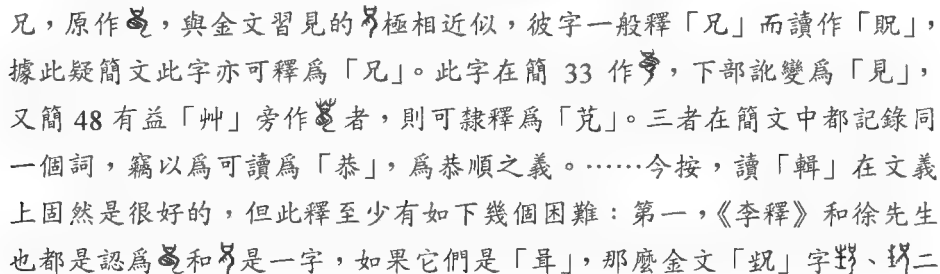 兄，原作，與金文習見的極相近似，彼字一般釋「兄」而讀作「貺」，
據此疑簡文此字亦可釋爲「兄」。此字在簡 33 作，下部訛變爲「見」，
又簡 48 有益「艸」旁作者，則可隸釋爲「茪」。三者在簡文中都記錄同
一個詞，竊以爲可讀爲「恭」，爲恭順之義。……今按，讀「輯」在文義
上固然是很好的，但此釋至少有如下幾個困難：第一，《李釋》和徐先生
也都是認爲和是一字，如果它們是「咠」，那麼金文「」字、二